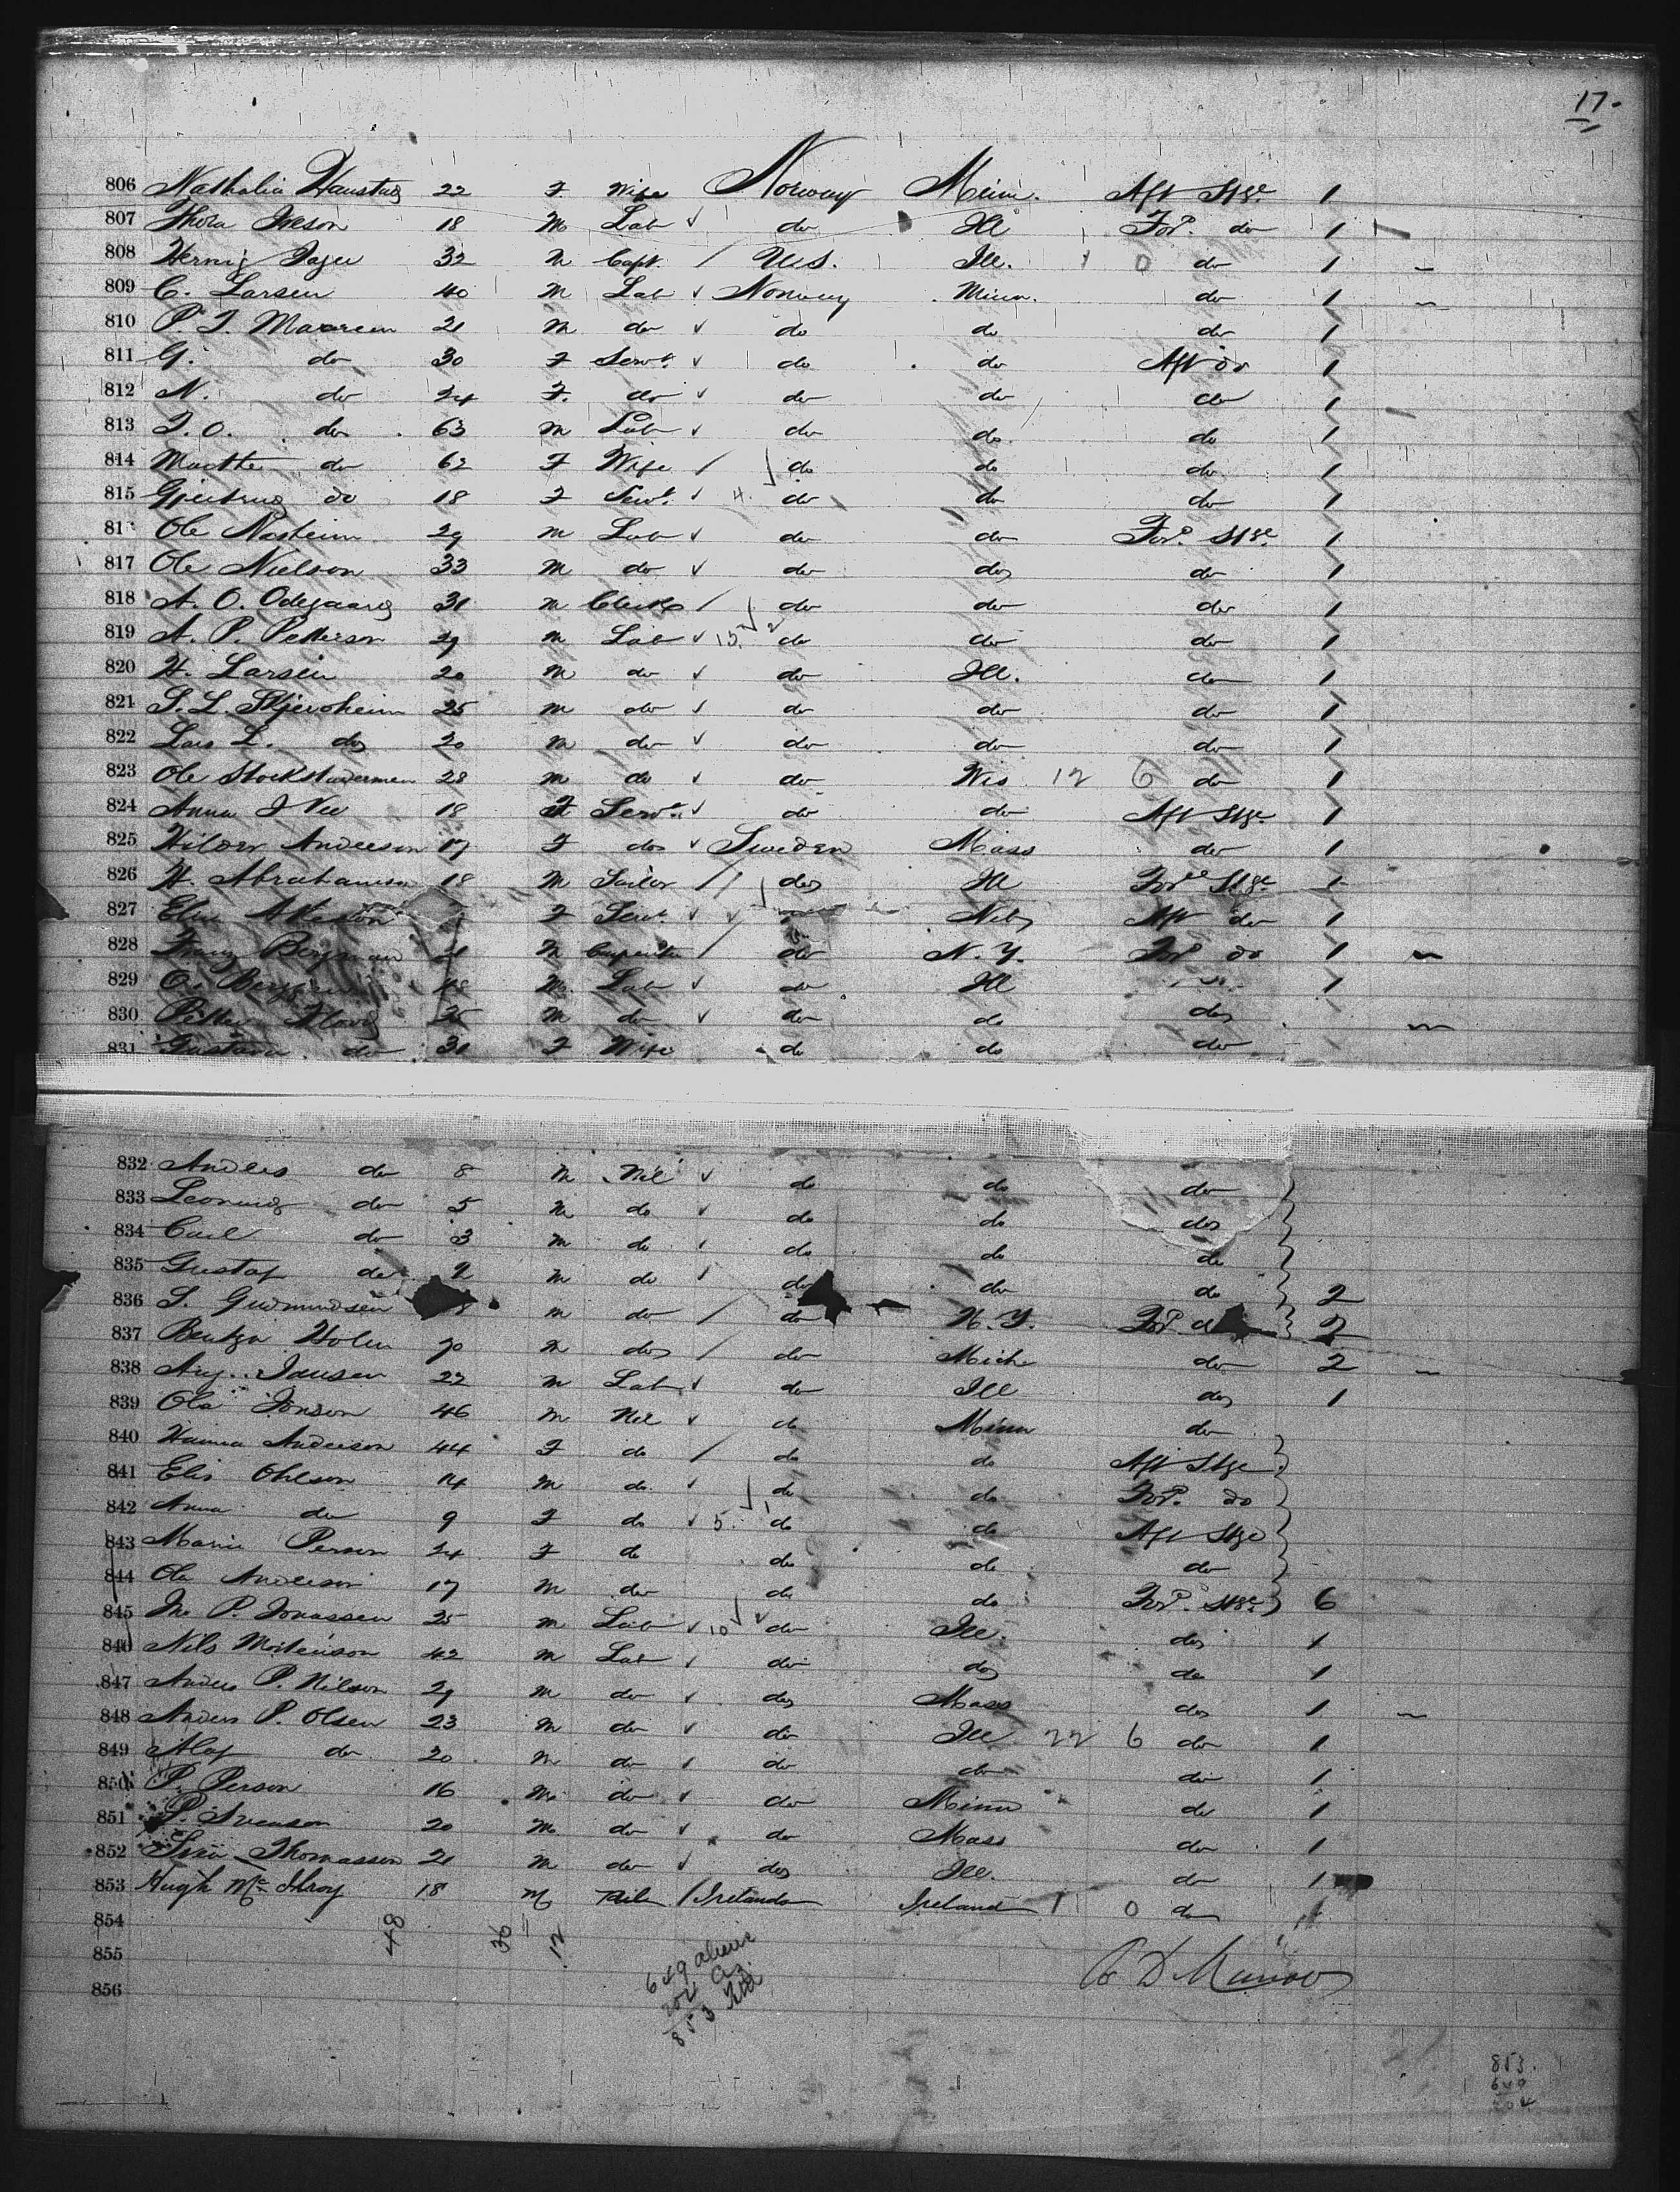 17.
806 Nathalia Haustad 22 F Wife Norway Minn. Aft Stge 1
807 Thora Iveson 18 M Lab do Ill Ford. do 1
808 32 M Capt. / U.S. Ill. 0 do 1
809 C. Larsen 40 M Lab Norway Minn. do 1
810 P. J. 21 M do do do do 1
811 G. do 30 F Servt. do do Aft do 1
812 N. do 24 F. do do do do 1
813 J. O. do 63 M Lab do do do 1
814 Marthe do 62 F Wife / do do do 1
815 do 18 F Servt. 4. do do do 1
81 Ole 29 M Lab do do Ford. Stge 1
817 Ole Nielson 33 M do do do do 1
818 A. O. Odegaard 31 M Clerk / do do do 1
819 A. P. Petterson 29 M Lab 13. 2 do do do 1
820 H. Larsen 20 M do do Ill. do 1
821 S. L. Skjervheim 25 M do do do do 1
822 Lars L. do 20 M do do do do 1
823 Ole 28 M do do Wis 12 6 do 1
824 Anna I Vee 18 F Servt. do do Aft Stge 1
825 Hilder Anderson 17 F do Sweden Mass do 1
826 H. Abrahamson 18 M Sailor / do Ill Ford Stge 1
827 F Servt. Neb Aft do 1
828 Bergman M Carpenter / do N. Y. Ford do 1
829 O. 48 M. Lab do Ill 1
830 M do do do do
831 Gustava do 30 F Wife do do do
832 Anders do 8 M Nil do do do
833 do 5 M do do do do
834 Carl do 3 M do do do do
835 Gustaf do 2 M do do do do 2
836 S. Gudmundsen M do / do N. Y. Ford. 2
837 Holm 70 M do / do Mich do 2
838 Aug. Jansen 22 M Lab do Ill do 1
839 Ola Jonson 46 M Nil do Minn do
840 Hanna Anderson 44 F do / do do Aft Stge
841 Elis Ohlson 14 M do do do Ford. do
842 Anna do 9 F do 5. 1 do do Aft Stge
843 Marie Person 24 F do do do do
844 Ola Anderson 17 M do do do Ford. Stge 6
845 Jno P. Jonassen 25 M Lab 10 do Ill. do 1
846 Nils Mortenson 42 M Lab do do do 1
847 Anders P. Nilson 29 M do do Mass do 1
848 Anders P. Olsen 23 M do do Ill 22 6 do 1
849 Alof do 20 M do do do do 1
850 P. Person 16 M do do Minn do 1
851 P. Svenson 20 M do do Mass do 1
852 Thomasson 21 M do do Ill. do 1
853 Hugh McIlroy 18 M / Ireland Ireland 1 0 do 1
854 48 36 12
855
856
649 above
204
853
853.
649
204